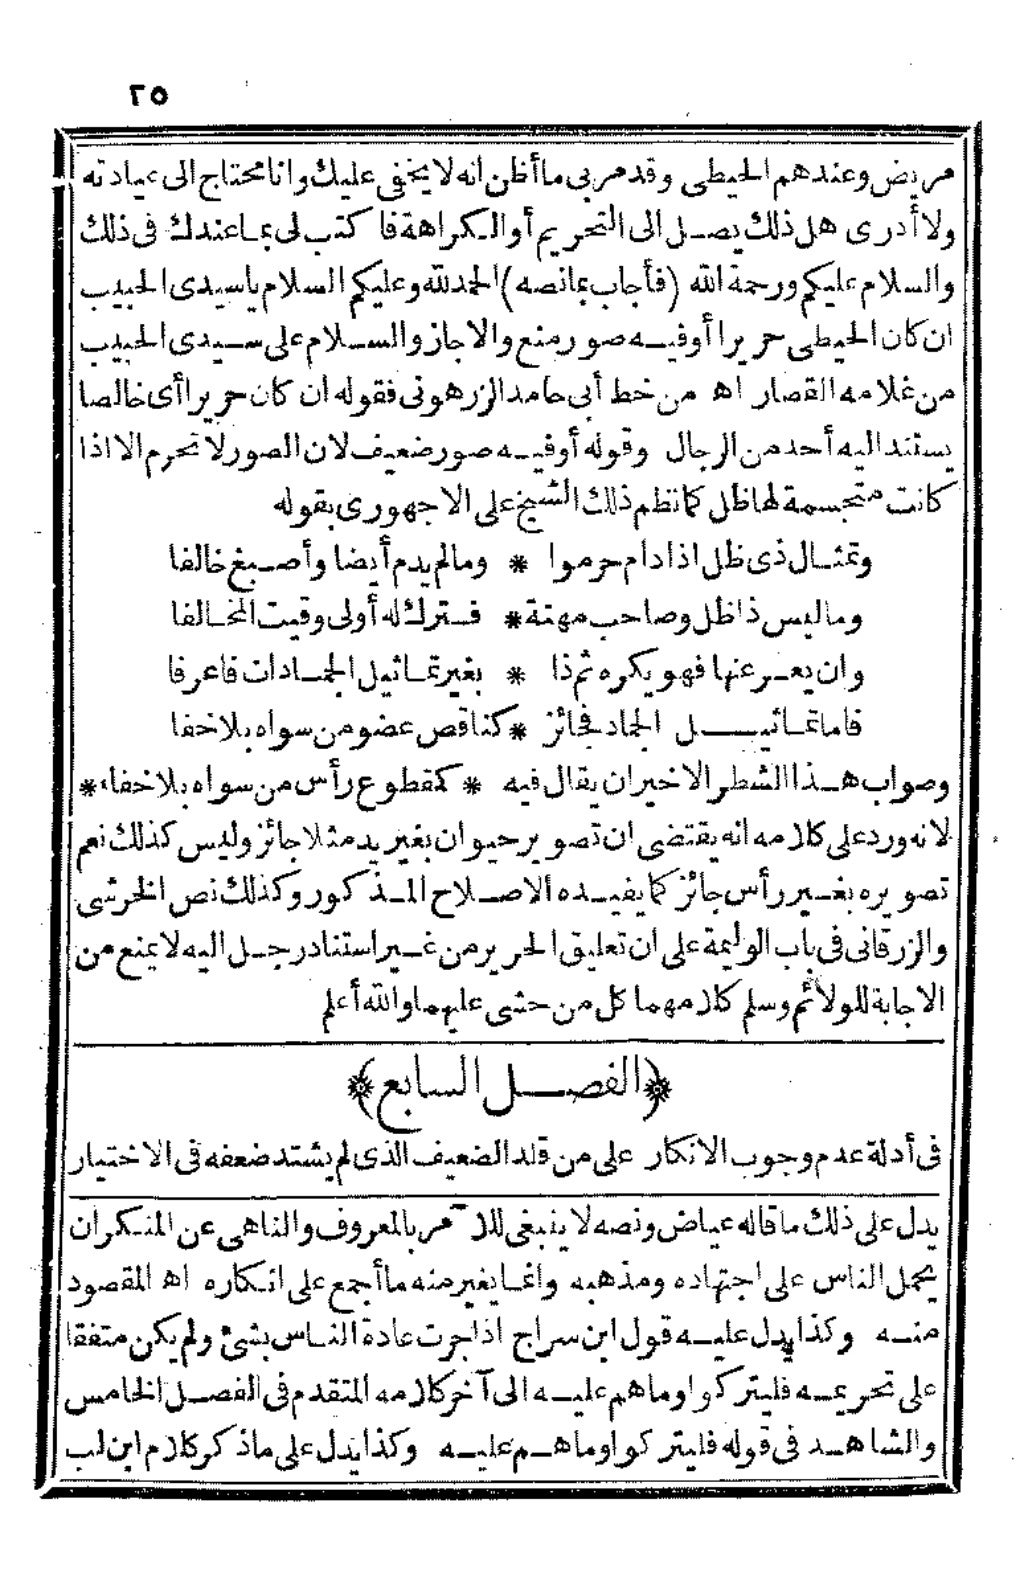 ٢٥
مريض وعندهم الحيطى وقد مر بى ما أظن انه لا يخفى عليك وانا محتاج الى عيادته
ولا أدرى هل ذلك يصل الى التحريم أو الكراهة فاكتب لى بما عندك فى ذلك
والسلام عليكم ورحمة الله (فأجاب بما نصه) الحمد لله وعليكم السلام ياسيدى الحبيب
ان كان الحيطى حريرا أو فيه صور منع والا جاز والسلام على سيدى الحبيب
من غلامه القصار اه من خط أبى حامد الزرهونى فقوله ان كان حريرا أى خالصا
يستند اليه أحد من الرجال وقوله أو فيه صور ضعيف لان الصور لا تحرم الا اذا
كانت متجسمة لها ظل كما نظم ذلك الشيخ على الاجهورى بقوله
وتمثال ذى ظل اذا دام حرموا * ومالم يدم أيضا وأصبغ خالفا
وما ليس ذا ظل وصاحب مهنة * فترك له أولى وقيت المخالفا
وان يعر عنها فهو يكره ثم ذا * بغير تماثيل الجمادات فاعرفا
فاما تماثيل الجماد فجائز * كناقص عضو من سواه بلا خفا
وصواب هذا الشطر الاخير ان يقال فيه * كمقطوع رأس من سواه بلا خفاء *
لانه ورد على كلامه انه يقتضى ان تصوير حيوان بغير يد مثلا جائز وليس كذلك نعم
تصويره بغير رأس جائز كما يفيده الاصلاح المذكور وكذلك نص الخرشى
والزرقانى فى باب الوليمة على ان تعليق الحرير من غير استناد رجل اليه لا يمنع من
الاجابة للولائم وسلم كلامهما كل من حشى عليهما والله أعلم
﴿الفصل السابع﴾
فى أدلة عدم وجوب الانكار على من قلد الضعيف الذى لم يشتد ضعفه فى الاختيار
يدل على ذلك ما قاله عياض ونصه لا ينبغى للآمر بالمعروف والناهى عن المنكر ان
يحمل الناس على اجتهاده ومذهبه وانما يغير منه ما أجمع على انكاره اه المقصود
منه وكذا يدل عليه قول ابن سراج اذا جرت عادة الناس بشئ ولم يكن متفقا
على تحريمه فليتركوا وما هم عليه الى آخر كلامه المتقدم فى الفصل الخامس
والشاهد فى قوله فليتركوا وما هم عليه وكذا يدل على ما ذكر كلام ابن لب